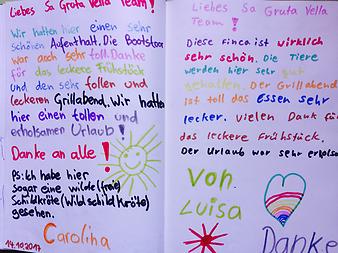 Liebes Sa Gruta Vella Team!
Wir hatten hier einen sehr
schönen Aufenthalt. Die Bootstour
war auch sehr toll. Danke
für das leckere Frühstück
und den sehr tollen und
leckeren Grillabend. Wir hatten
hier einen tollen und
erholsamen Urlaub!
Danke an alle!
Ps: Ich habe hier
sogar eine wilde (freie)
Schildkröte (Wildschildkröte)
gesehen.
Carolina
14.10.2017
Liebes Sa Gruta Vella
Team!
Diese Finca ist wirklich
sehr schön. Die Tiere
werden hier sehr gut
gehalten. Der Grillabend
ist toll das Essen sehr
lecker. Vielen Dank für
das leckere Frühstück.
Der Urlaub war sehr
Von
Luisa
Danke